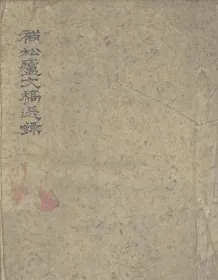 補松廬文稿選錄